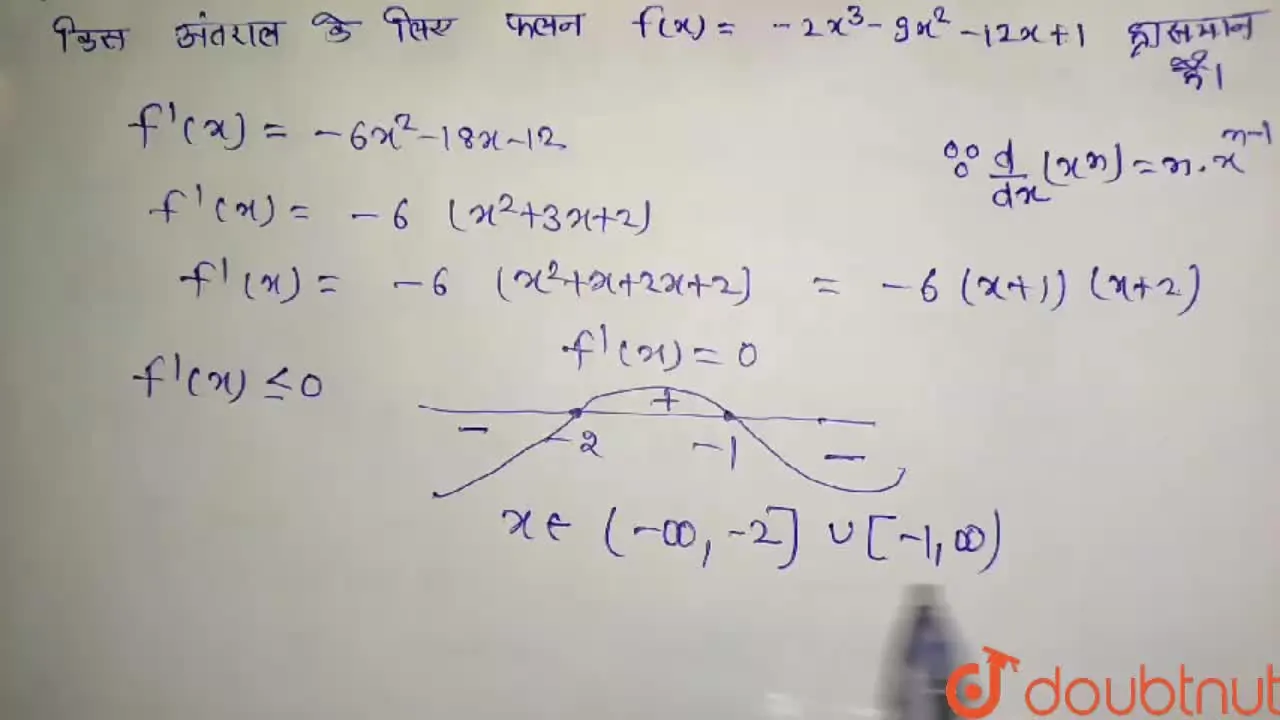 किस अंतराल के लिए फलन f(x) = -2x³-9x²-12x+1 ह्रासमान
है।
f'(x) = -6x²-18x-12
∵ d/dx (xⁿ) = n·xⁿ⁻¹
f'(x) = -6 (x²+3x+2)
f'(x) = -6 (x²+x+2x+2) = -6 (x+1) (x+2)
f'(x) = 0
f'(x) ≤ 0
+
- -2 -1 -
x ∈ (-∞, -2] ∪ [-1, ∞)
doubtnut